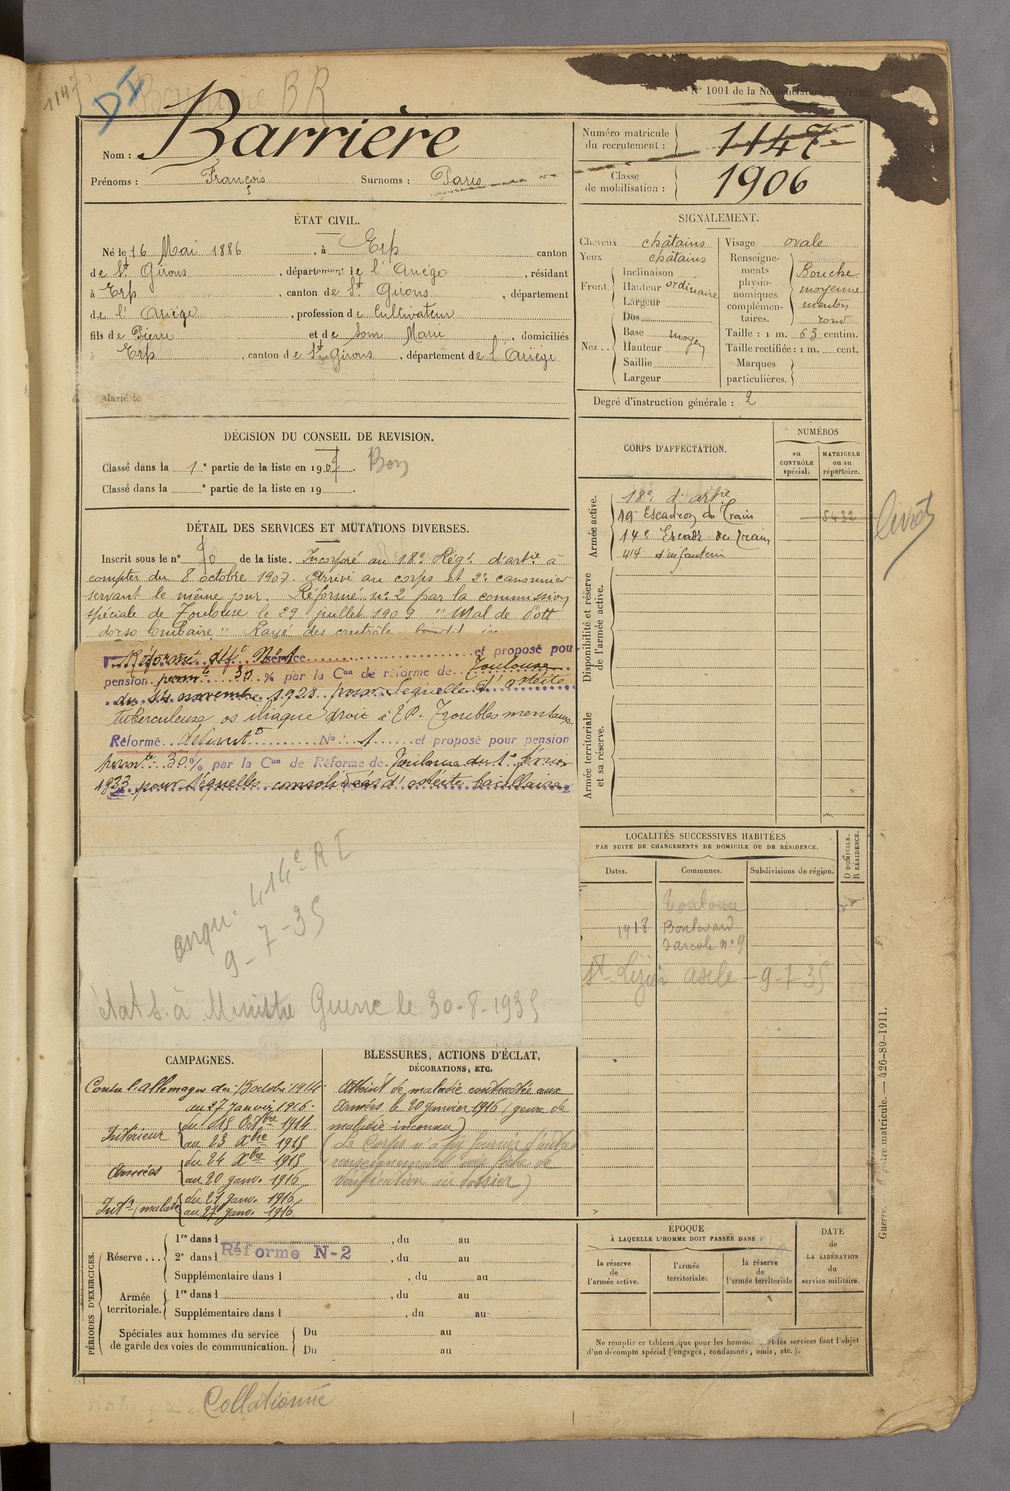 1147
DI
Barrière BR
N° 1001 de la Nomenclature générale.
Nom : Barrière
Prénoms : François Surnoms : Paris
Numéro matricule du recrutement : 1147
Classe de mobilisation : 1906
ÉTAT CIVIL.
Né le 16 Mai 1886, à Erp canton
de St Girons, département de l'Ariége, résidant
à Erp, canton de St Girons, département
de l'Ariége, profession de Cultivateur
fils de Pierre et de Som Marie, domiciliés
à Erp, canton de St Girons, département de l'Ariége
Marié le
SIGNALEMENT.
Cheveux châtains
Yeux châtains
Front. Inclinaison
Hauteur ordinaire
Largeur
Nez. Dos
Base moyen
Hauteur
Saillie
Largeur
Visage ovale
Renseignements physionomiques complémentaires. Bouche moyenne menton rond
Taille : 1 m. 63 centim.
Taille rectifiée : 1 m. cent.
Marques particulières.
Degré d'instruction générale : 2
DÉCISION DU CONSEIL DE REVISION.
Classé dans la 1e partie de la liste en 1907. Bon
Classé dans la e partie de la liste en 19
CORPS D'AFFECTATION.
NUMÉROS
au CONTRÔLE spécial.
MATRICULE ou au répertoire.
Armée active.
18e d'artie
19e Escadron du Train 5422
14e Escadr. du Train
414 d'infanterie
livret
Disponibilité et réserve de l'armée active.
Armée territoriale et sa réserve.
DÉTAIL DES SERVICES ET MUTATIONS DIVERSES.
Inscrit sous le n° de la liste. Incorporé au 18e Régt d'artie à
compter du 8 octobre 1907. Arrivé au corps et 2e canonnier
servant le même jour. Réformé n° 2 par la commission
spéciale de Toulouse le 29 juillet 1909 "Mal de Pott
dorso lombaire". Rayé des contrôles
Réformé défit N° 1 et proposé pour
pension permte 30 % par la Con de réforme de Toulouse
du novembre 1928 pour Sequelle d'ostéite
tuberculeuse os iliaque droit à EP. Troubles mentaux
Réformé définitt N° 1 et proposé pour pension
permte 30 % par la Con de Réforme de Toulouse du 1e février
1933 pour Séquelles consolidées d'ostéite bacillaire
414e RI
9-7-35
état S. à Ministre Guerre le 30-8-1935
LOCALITÉS SUCCESSIVES HABITÉES
PAR SUITE DE CHANGEMENTS DE DOMICILE OU DE RÉSIDENCE.
Dates. Communes. Subdivisions de région. D DOMICILE. R RÉSIDENCE.
Toulouse
1918 Boulevard
d'arcole n° 9
St Lizier asile - 9-7-35
CAMPAGNES.
Contre l'allemagne du 15 octobre 1914
au 27 janvier 1916.
Intérieur du 15 octbre 1914
au 23 Xbre 1915
Armées du 24 Xbre 1915
au 20 janv. 1916
Intr (malade) du 21 janv. 1916
au 27 janv. 1916
BLESSURES, ACTIONS D'ÉCLAT, DÉCORATIONS, ETC.
Atteint de maladie contractée aux
armées le 20 janvier 1916 (genre de
maladie inconnu)
(Le Corps n'a pu fournir d'autres
renseignements
vérification au dossier)
PÉRIODES D'EXERCICES.
Réserve... 1re dans l , du au
2e dans l Réformé N-2 , du au
Supplémentaire dans l , du au
Armée territoriale. 1re dans l , du au
Supplémentaire dans l , du au
Spéciales aux hommes du service de garde des voies de communication. Du au
Du au
ÉPOQUE
À LAQUELLE L'HOMME DOIT PASSER DANS
la réserve de l'armée active.
l'armée territoriale.
la réserve de l'armée territoriale
DATE de LA LIBÉRATION du service militaire.
Ne remplir ce tableau que pour les hommes les services font l'objet
d'un décompte spécial (engagés, condamnés, omis, etc.).
Collationné
Guerre. matricule. — 426-89-1911.